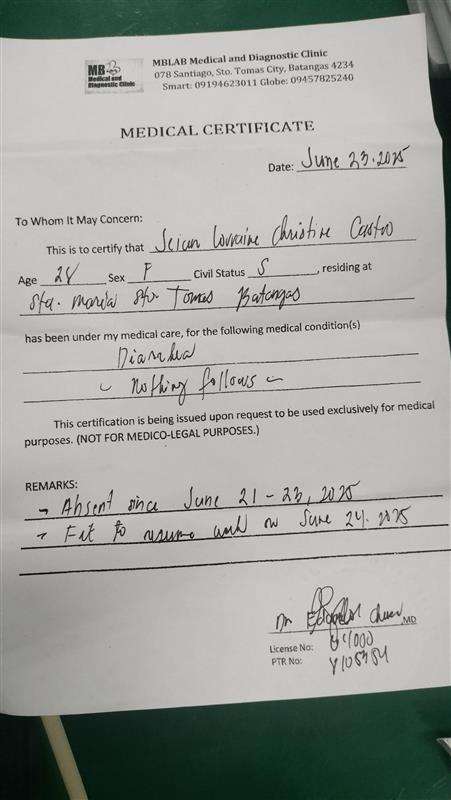 MB
Medical and
Diagnostic Clinic
MBLAB Medical and Diagnostic Clinic
078 Santiago, Sto. Tomas City, Batangas 4234
Smart: 09194623011 Globe: 09457825240
MEDICAL CERTIFICATE
Date: June 23, 2025
To Whom It May Concern:
This is to certify that Lorraine Christine Castro
Age 28 Sex F Civil Status S, residing at
Sta. Maria Sto. Tomas Batangas
has been under my medical care, for the following medical condition(s)
Diarrhea
- nothing follows -
This certification is being issued upon request to be used exclusively for medical
purposes. (NOT FOR MEDICO-LEGAL PURPOSES.)
REMARKS:
→ Absent since June 21-23, 2025
→ Fit to resume work on June 24, 2025
Dr. ,MD
License No:
PTR No: